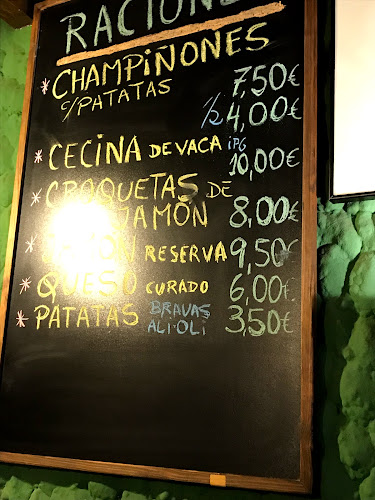 RACIONES
* CHAMPIÑONES 7,50€
c/PATATAS ½ 4,00€
* CECINA DE VACA IPG 10,00€
* CROQUETAS DE
JAMÓN 8,00€
* JAMÓN RESERVA 9,50€
* QUESO CURADO 6,00€
* PATATAS BRAVAS
ALI-OLI 3,50€